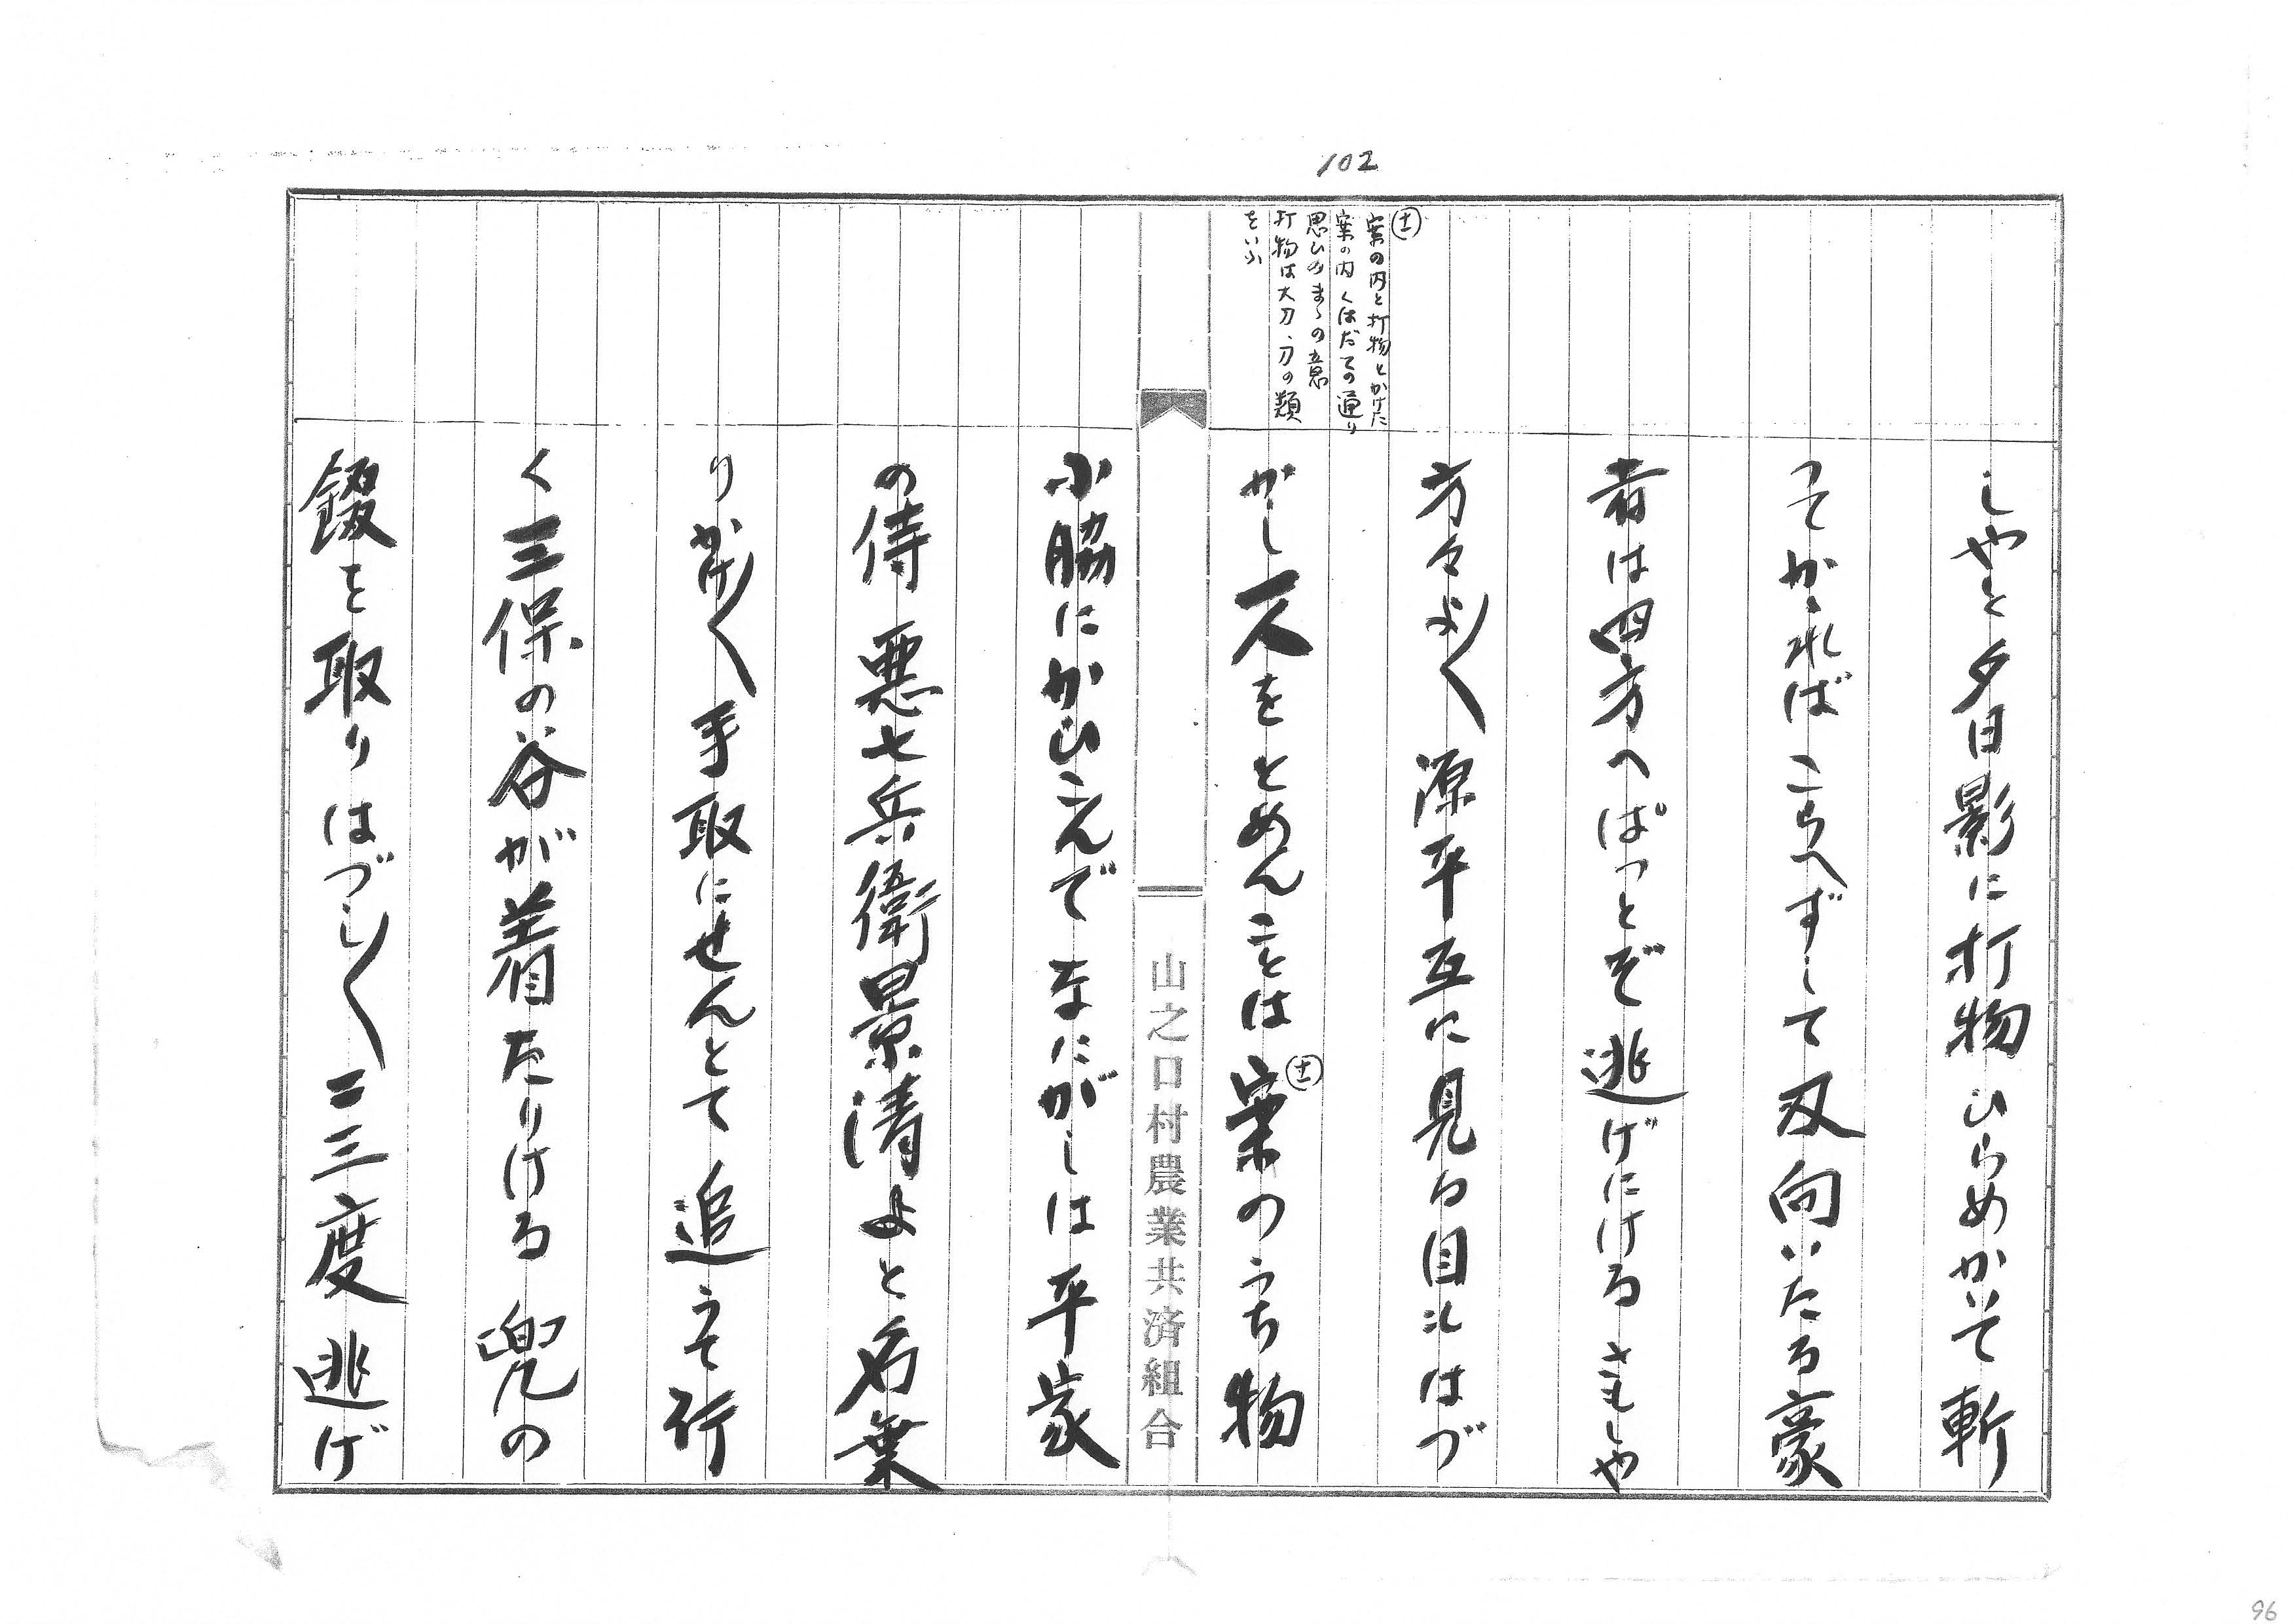 102
㊉
案の内と打物とかけた
案の内くはだての通り
思ひのまゝの意
打物は大刀、刀の類
をいふ
しやと夕日影に打物ひらめかいて斬
つてかゝればこらへずして刃向いたる豪
者は四方へぱつとぞ逃げにけるさもしや
方々よ〳〵源平互に見る目もはづ
かし一人をとめんことは案のうち物
小脇にかひこんでなにがしは平家
の侍悪七兵衛景清よと名乗
りかけ〳〵手取にせんとて追うて行
く三保の谷が着たりける兜の
錣を取りはづし〳〵二三度逃げ
山之口村農業共済組合
96